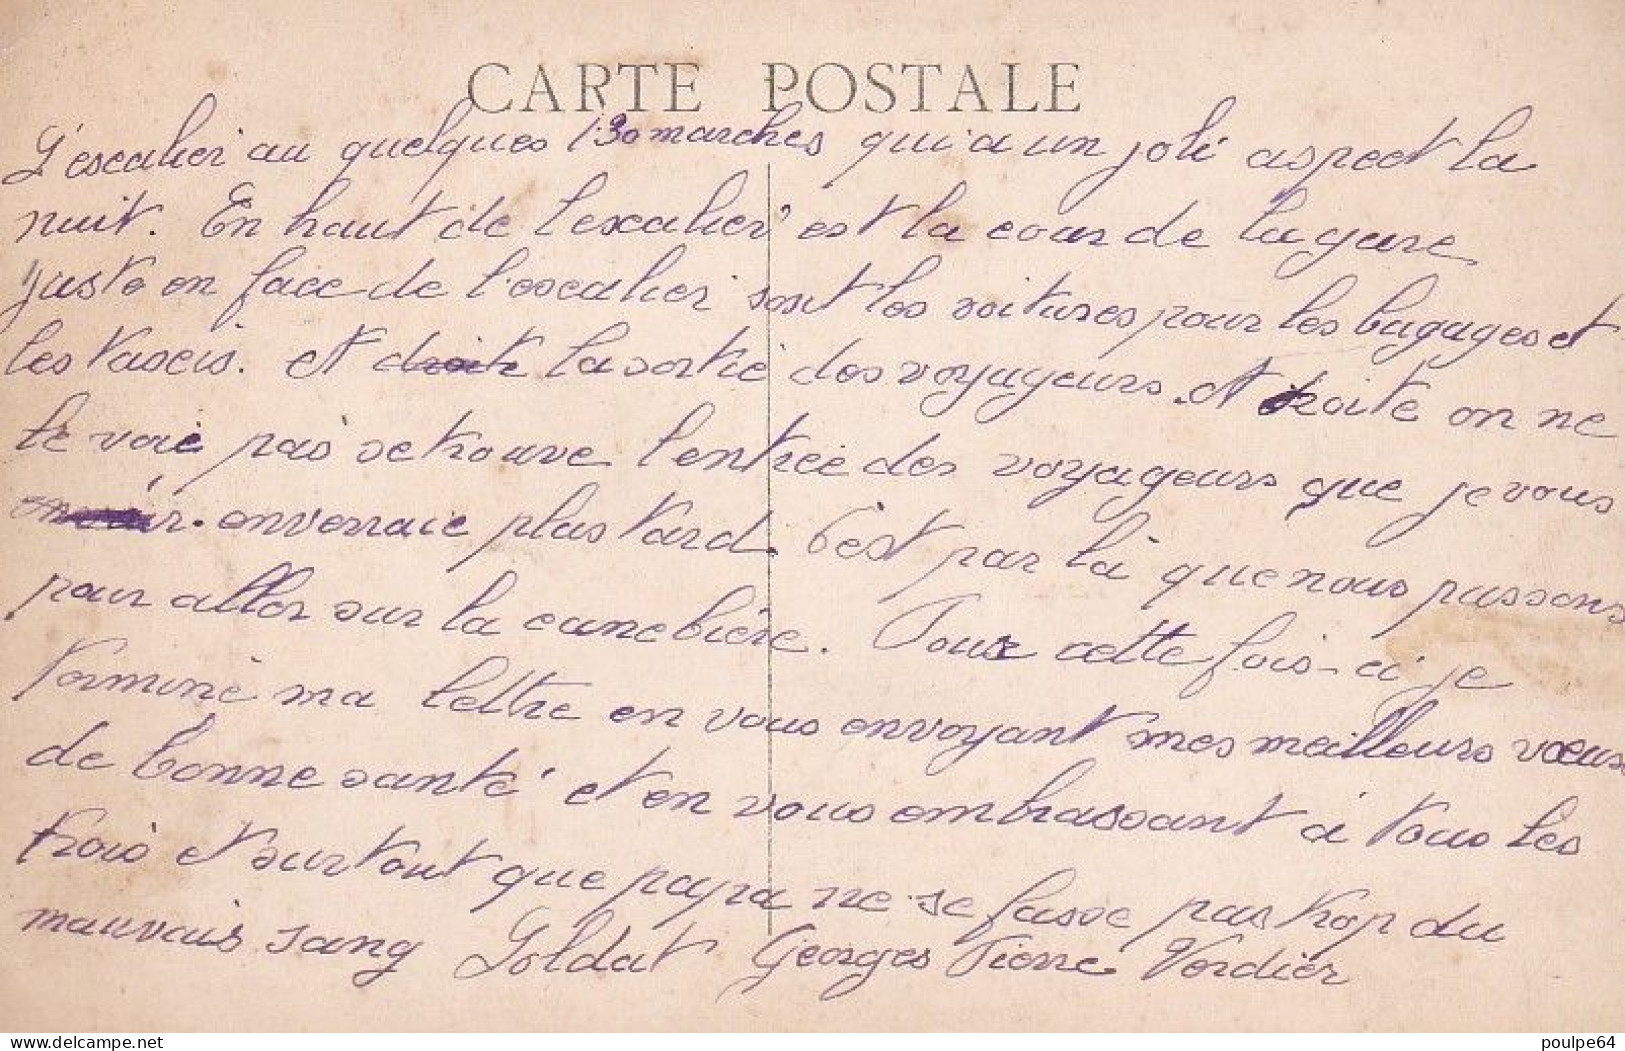 CARTE POSTALE
L'escalier au quelques 130 marches qui a un joli aspect la
nuit. En haut de l'escalier est la cour de la gare
juste en face de l'escalier sont les voitures pour les bagages et
les taxeis. et droite la sortie des voyageurs. et droite on ne
le voie pas se trouve l'entrée des voyageurs que je vous
enverraie plus tard. C'est par là que nous passons
pour aller sur la canebière. Pour cette fois-ci je
termine ma lettre en vous envoyant mes meilleurs vœux
de bonne santé et en vous embrassant à tous les
trois et surtout que papa ne se fasse pas trop du
mauvais sang Soldat Georges Pierre Verdier
delcampe.net
poulpe64